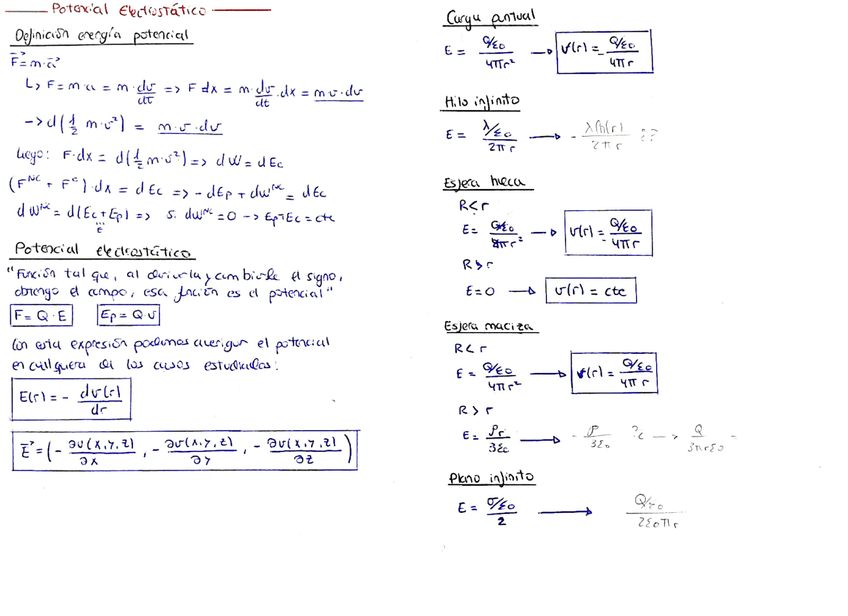 Potencial Electrostático
Definición energía potencial
F⃗ = m·a⃗
↳ F = m·a = m·dv/dt => F dx = m·dv/dt·dx = m·v·dv
-> d(1/2 m·v²) = m·v·dv
luego: F·dx = d(1/2 m·v²) => dW = dEc
(F^NC + F^C)·dx = dEc => -dEp + dW^NC = dEc
dW^NC = d(Ec+Ep) => si dW^NC = 0 -> Ep+Ec = cte
E
Potencial electrostático
"Función tal que, al derivarla y cambiarle el signo,
obtengo el campo, esa función es el potencial"
F = Q·E Ep = Q·v
Con esta expresión podemos averiguar el potencial
en cualquiera de los casos estudiados:
E(r) = - dv(r)/dr
E⃗ = (- ∂v(x,y,z)/∂x, - ∂v(x,y,z)/∂y, - ∂v(x,y,z)/∂z)
Carga puntual
E = Q/ε0 / 4πr² -> v(r) = Q/ε0 / 4πr
Hilo infinito
E = λ/ε0 / 2πr -> - λ ln(r) / 2πr ??
Esfera hueca
R<r
E = Q/ε0 / 4πr² -> v(r) = Q/ε0 / 4πr
R>r
E = 0 -> v(r) = cte
Esfera maciza
R<r
E = Q/ε0 / 4πr² -> v(r) = Q/ε0 / 4πr
R>r
E = ρr / 3ε0 -> - ρ / 3ε0 ?c -> Q / 3πrε0 =
Plano infinito
E = σ/ε0 / 2 -> Q/ε0 / 2ε0πr